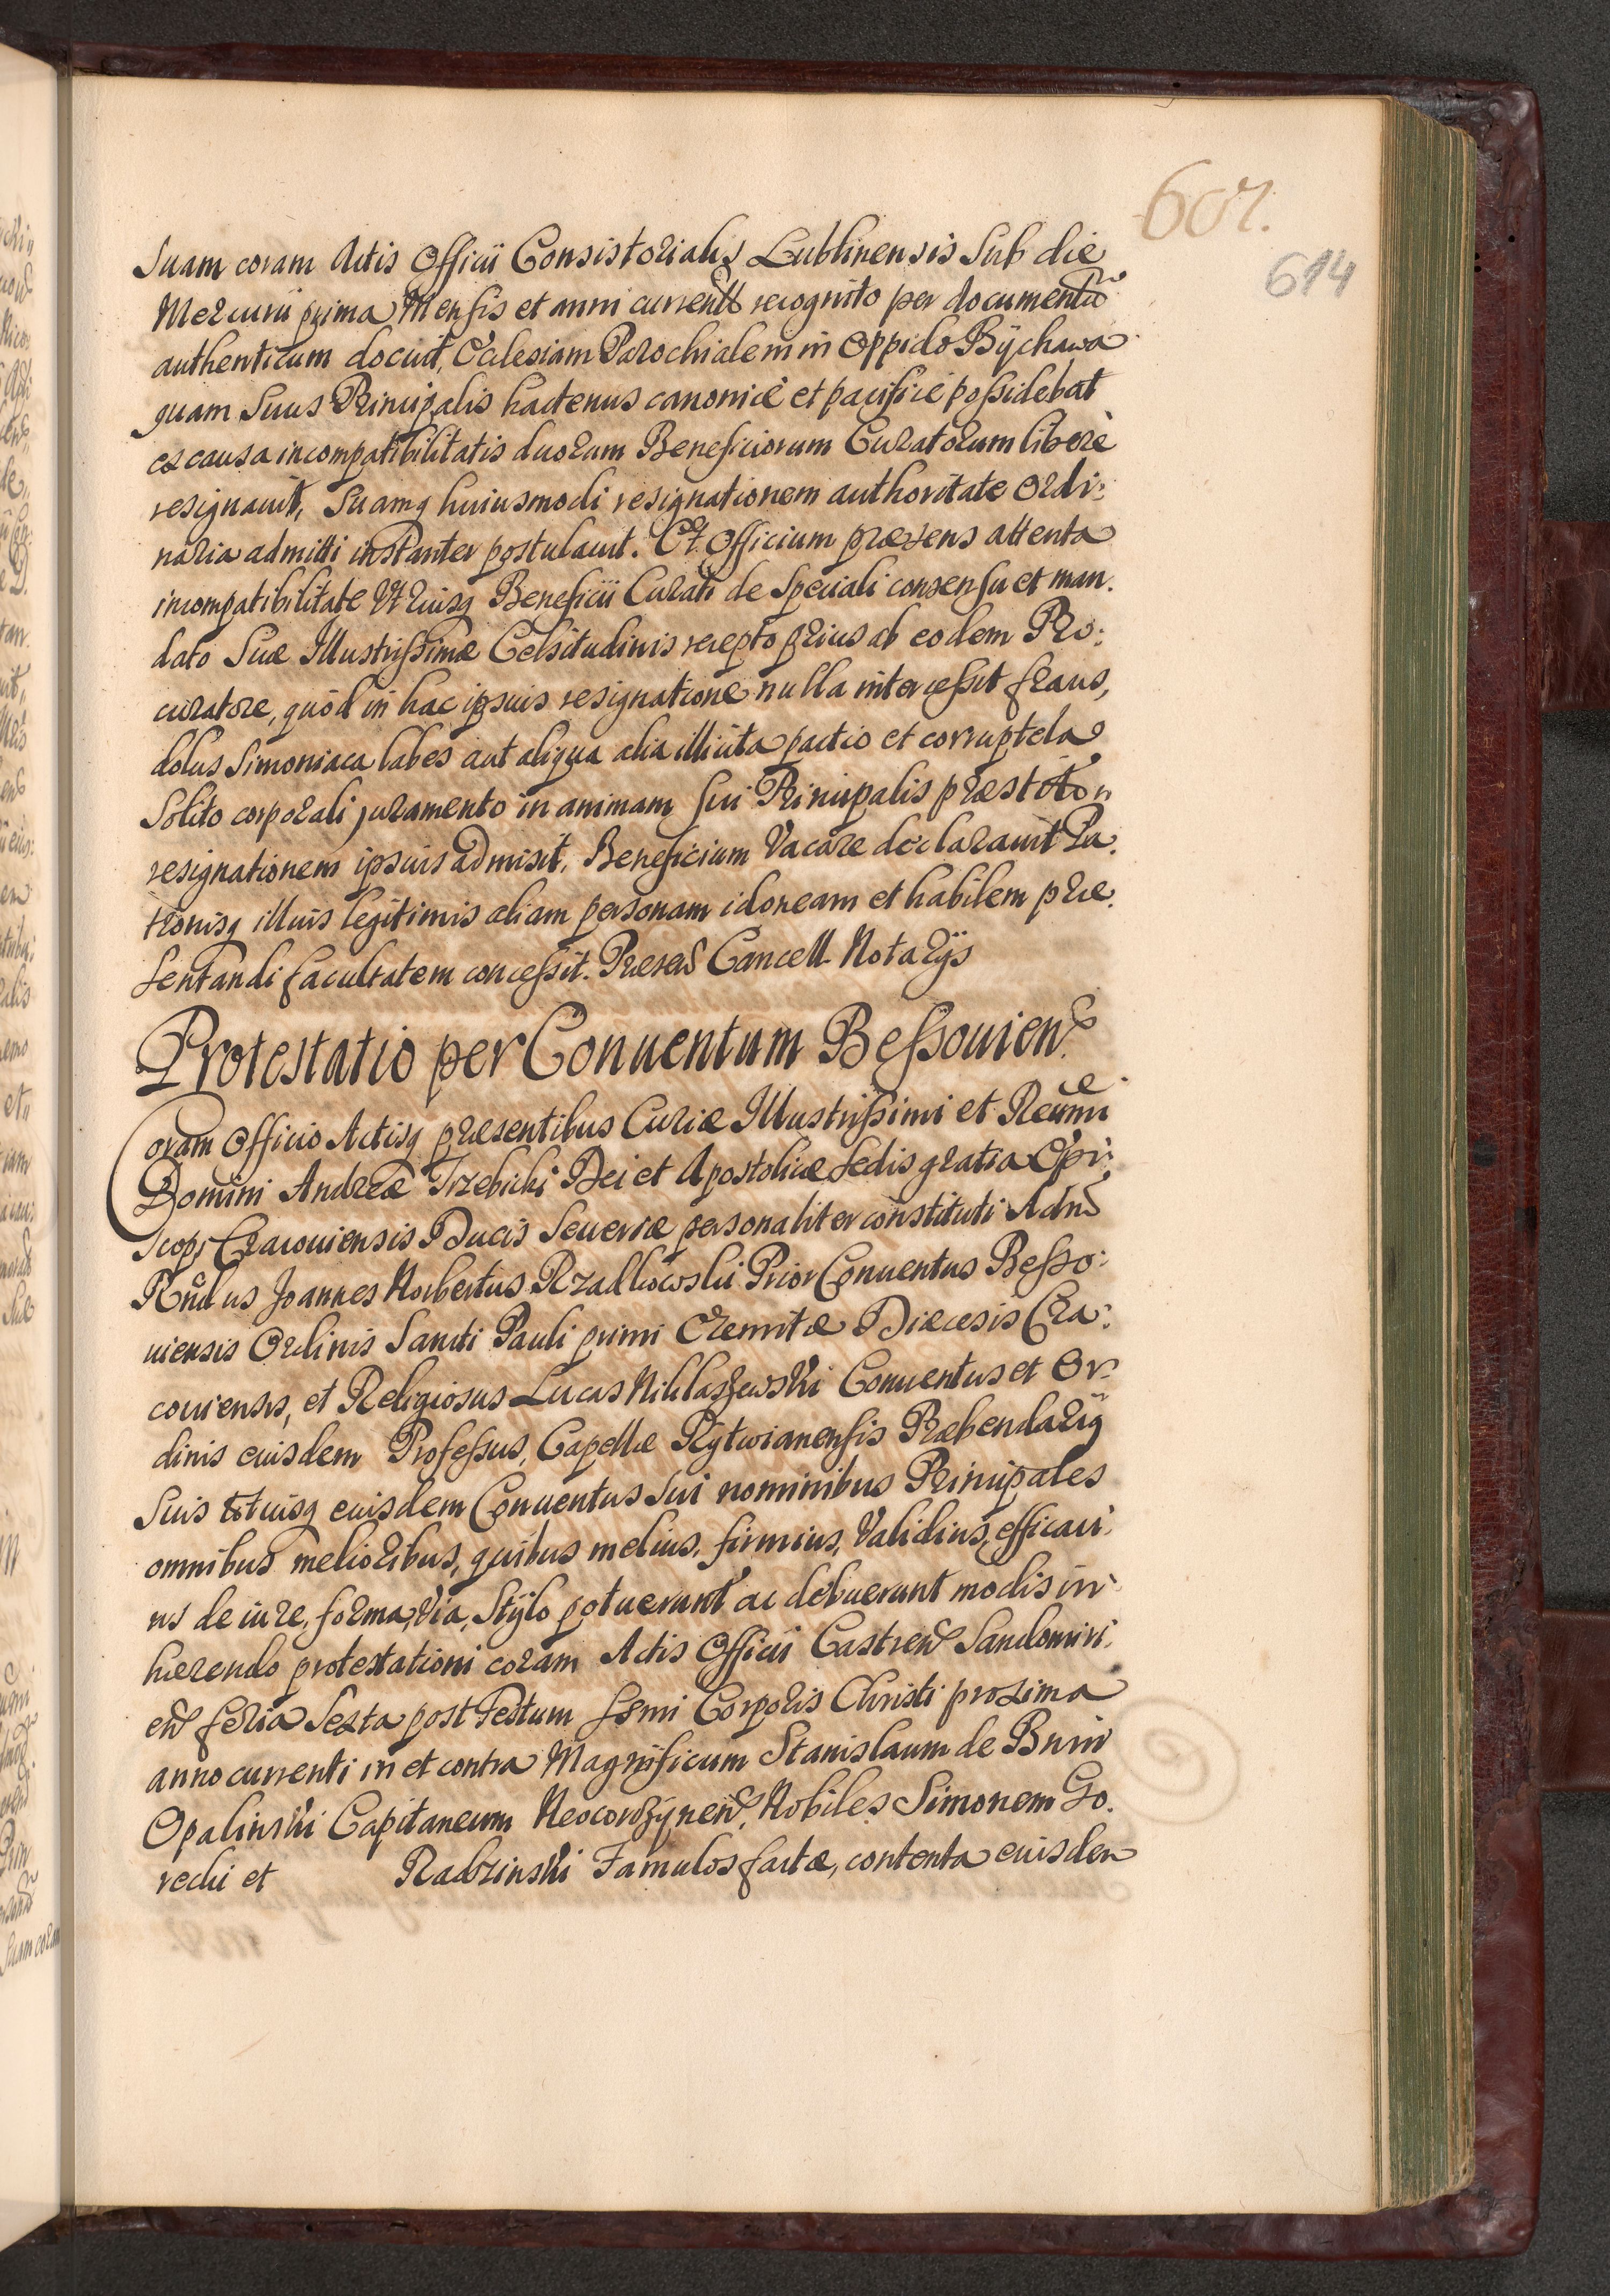 607.
614
Suam coram Actis Officii Consistorialis Lublinensis Sub die
Mercurii prima Mensis et anni currentis recognito per documentũ
authenticum docuit, Ecclesiam Parochialem in Oppido Bÿchawa
quam Suus Principalis hactenus canonicè et pacificè possidebat
ex causa incompatibilitatis duorum Beneficiorum Curatorum liberè
resignauit, Suamq huiusmodi resignationem authoritate Ordi:
naria admitti instanter postulauit. Et Officium præsens attenta
incompatibilitate Vtriusq Beneficii Curati de Speciali consensu et man.
dato Suæ Illustrissimæ Celsitudinis recepto prius ab eodem Pro:
curatore, quòd in hac ipsius resignatione nulla intercessit fraus,
dolus Simoniaca labes aut aliqua alia illicita pactio et corruptela
Solito corporali juramento in animam Sui Principalis præstito
resignationem ipsius admisit, Beneficium Vacare declarauit Pa.
tronisq illius legitimis aliam personam idoneam et habilem præ.
sentandi facultatem concessit. Præsen Cancell. Notarÿs
Protestatio per Conuentum Bessouien.
Coram Officio Actisq præsentibus Curiæ Illustrissimi et Reũmi
Domini Andreæ Trzebicki Dei et Apostolicæ Sedis gratia Epi:
scopi Cracouiensis Ducis Seueriæ personaliter constituti Adm
Rñdus Joannes Norbertus Rzadkowski Prior Conuentus Besso:
uiensis Ordinis Sancti Pauli primi Eremitæ Diæcesis Cra:
couiensis, et Religiosus Lucas Niklaszewski Conuentus et Or:
dinis eiusdem Professus, Capellæ Rytwianensis Præbendariÿ
Suis totiusq eiusdem Conuentus Sui nominibus Principales
omnibus melioribus, quibus melius, firmius, Validius, efficaci:
us de iure, forma, via, Stÿlo potuerunt ac debuerunt modis in:
hærendo protestationi coram Actis Officii Castren Sandomiri:
en feria Sexta post Festum Ssmi Corporis Christi proxima
anno currenti in et contra Magnificum Stanislaum de Bnin
Opalinski Capitaneum Neocorczÿnen, Nobiles Simonem Go.
recki et Radzinski Famulos factæ, contenta eiusdem